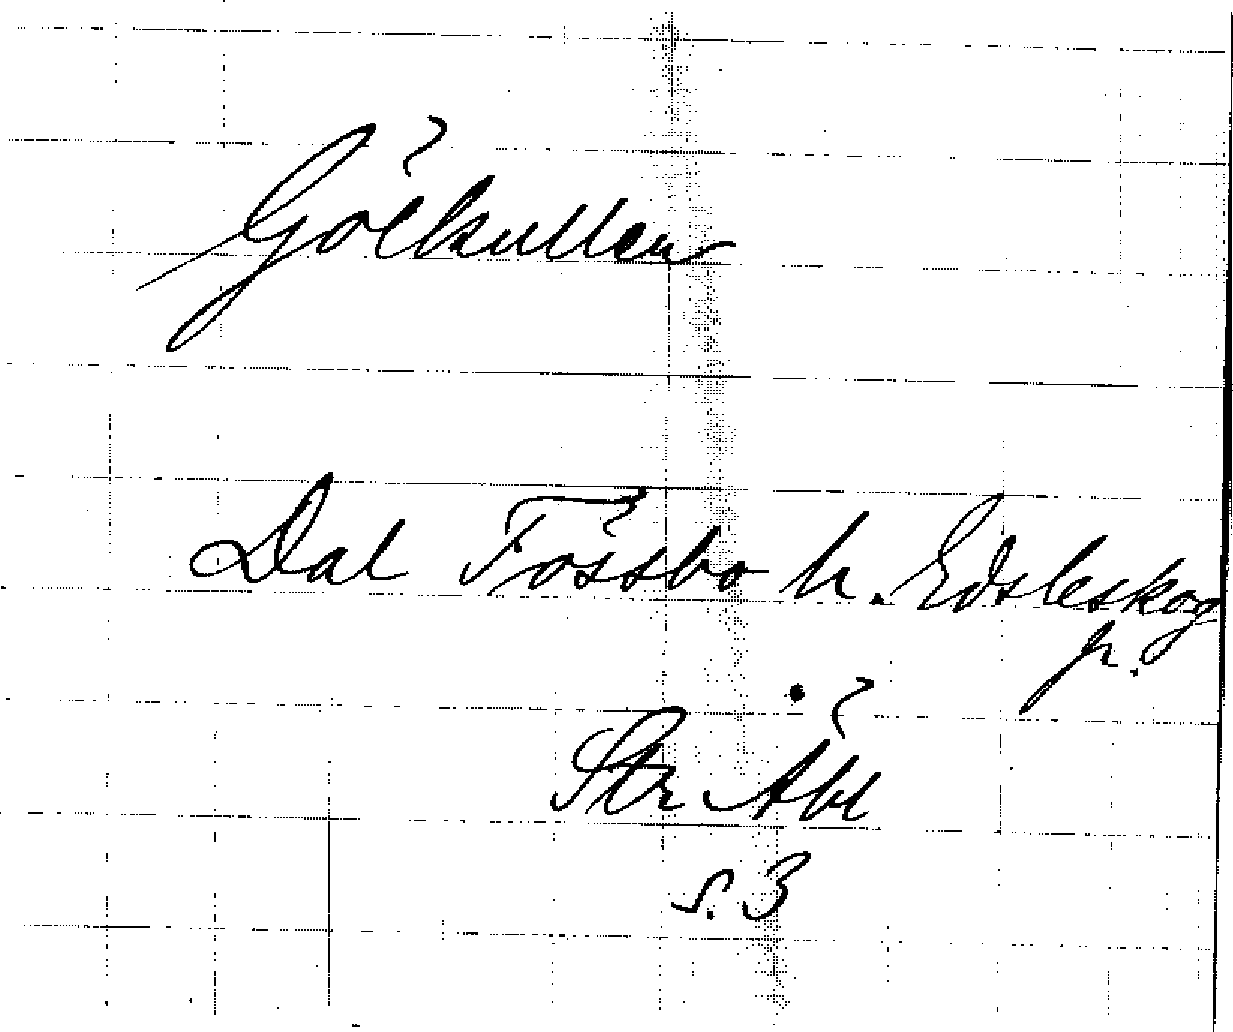 Gölkullen
Dal Tössbo h. Edsleskog
p.
Str
s. 3